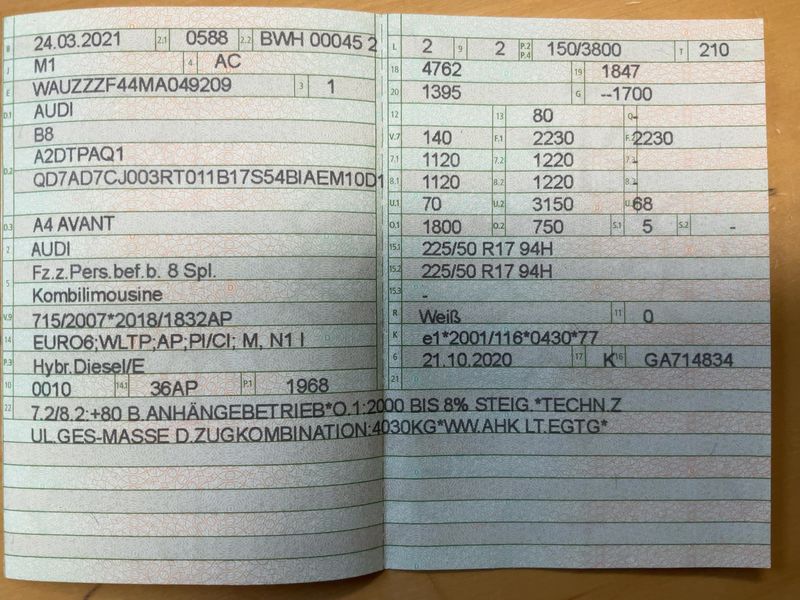 B 24.03.2021 2.1 0588 2.2 BWH 00045 2
J M1 4 AC
E WAUZZZF44MA049209 3 1
D.1 AUDI
B8
A2DTPAQ1
D.2 QD7AD7CJ003RT011B17S54BIAEM10D1
D.3 A4 AVANT
2 AUDI
5 Fz.z.Pers.bef.b. 8 Spl.
Kombilimousine
V.9 715/2007*2018/1832AP
14 EURO6;WLTP;AP;PI/CI; M, N1 I
P.3 Hybr.Diesel/E
10 0010 14.1 36AP P.1 1968
22 7.2/8.2:+80 B.ANHÄNGEBETRIEB*O.1:2000 BIS 8% STEIG.*TECHN.Z
UL.GES-MASSE D.ZUGKOMBINATION:4030KG*WW.AHK LT.EGTG*
L 2 9 2 P.2 P.4 150/3800 T 210
18 4762 19 1847
20 1395 G --1700
12 13 80 Q -
V.7 140 F.1 2230 F.2 2230
7.1 1120 7.2 1220 7.3 -
8.1 1120 8.2 1220 8.3 -
U.1 70 U.2 3150 U.3 68
O.1 1800 O.2 750 S.1 5 S.2 -
15.1 225/50 R17 94H
15.2 225/50 R17 94H
15.3 -
R Weiß 11 0
K e1*2001/116*0430*77
6 21.10.2020 17 K 16 GA714834
21